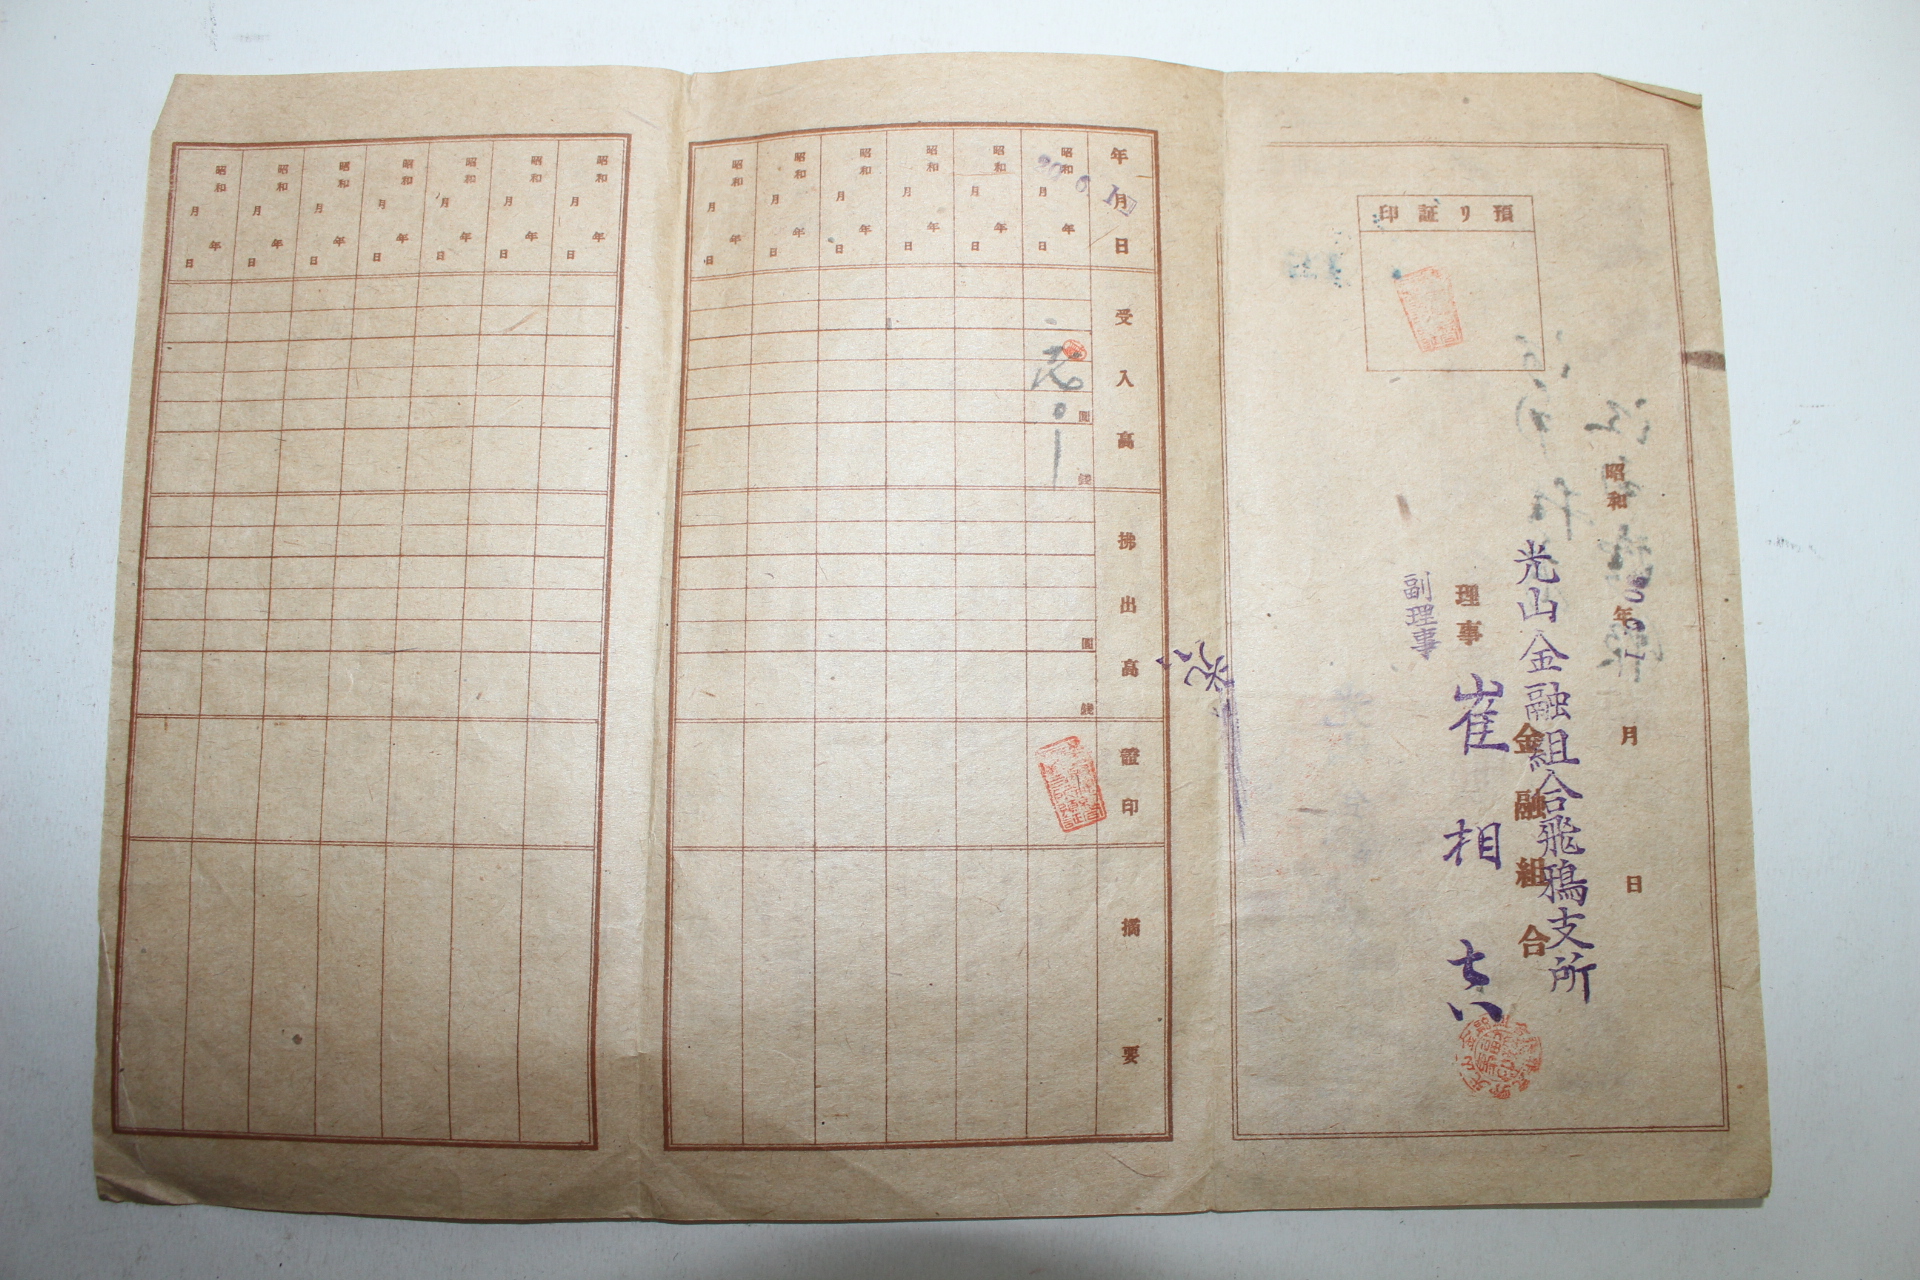 預リ証印
昭和 年 月 日
光山金融組合飛鴉支所
金融組合
理事 崔相
副理事
年月日
受入高
拂出高
證印
摘要
圓
錢
圓
錢
20 6. 1
昭和 年 月 日
昭和 年 月 日
昭和 年 月 日
昭和 年 月 日
昭和 年 月 日
昭和 年 月 日
昭和 年 月 日
昭和 年 月 日
昭和 年 月 日
昭和 年 月 日
昭和 年 月 日
昭和 年 月 日
昭和 年 月 日